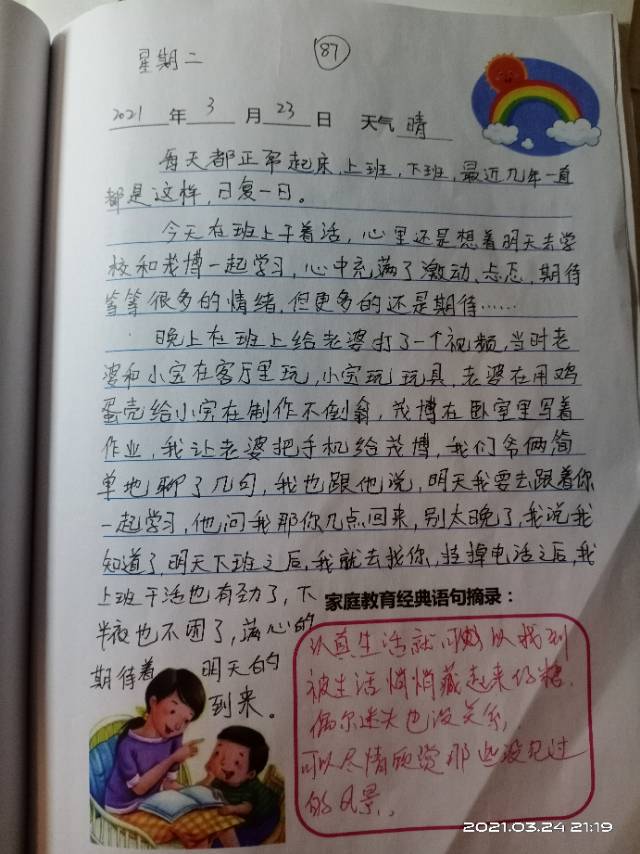 星期二
87
2021年3月23日 天气 晴
每天都正常起床,上班,下班,最近几年一直
都是这样,日复一日。
今天在班上干着活,心里还是想着明天去学
校和茂博一起学习,心中充满了激动、忐忑、期待
等等很多的情绪,但更多的还是期待……
晚上在班上给老婆打了一个视频,当时老
婆和小宝在客厅里玩,小宝玩玩具,老婆在用鸡
蛋壳给小宝在制作不倒翁,茂博在卧室里写着
作业,我让老婆把手机给茂博,我们爷俩简
单地聊了几句,我也跟他说,明天我要去跟着你
一起学习,他问我那你几点回来,别太晚了,我说我
知道了,明天下班之后,我就去找你,挂掉电话之后,我
上班干活也有劲了,下
半夜也不困了,满心的
期待着 明天的
到来。
家庭教育经典语句摘录:
认真生活就可以找到
被生活悄悄藏起来的糖,
偶尔迷失也没关系,
可以尽情欣赏那些没见过
的风景。
2021.03.24 21:19